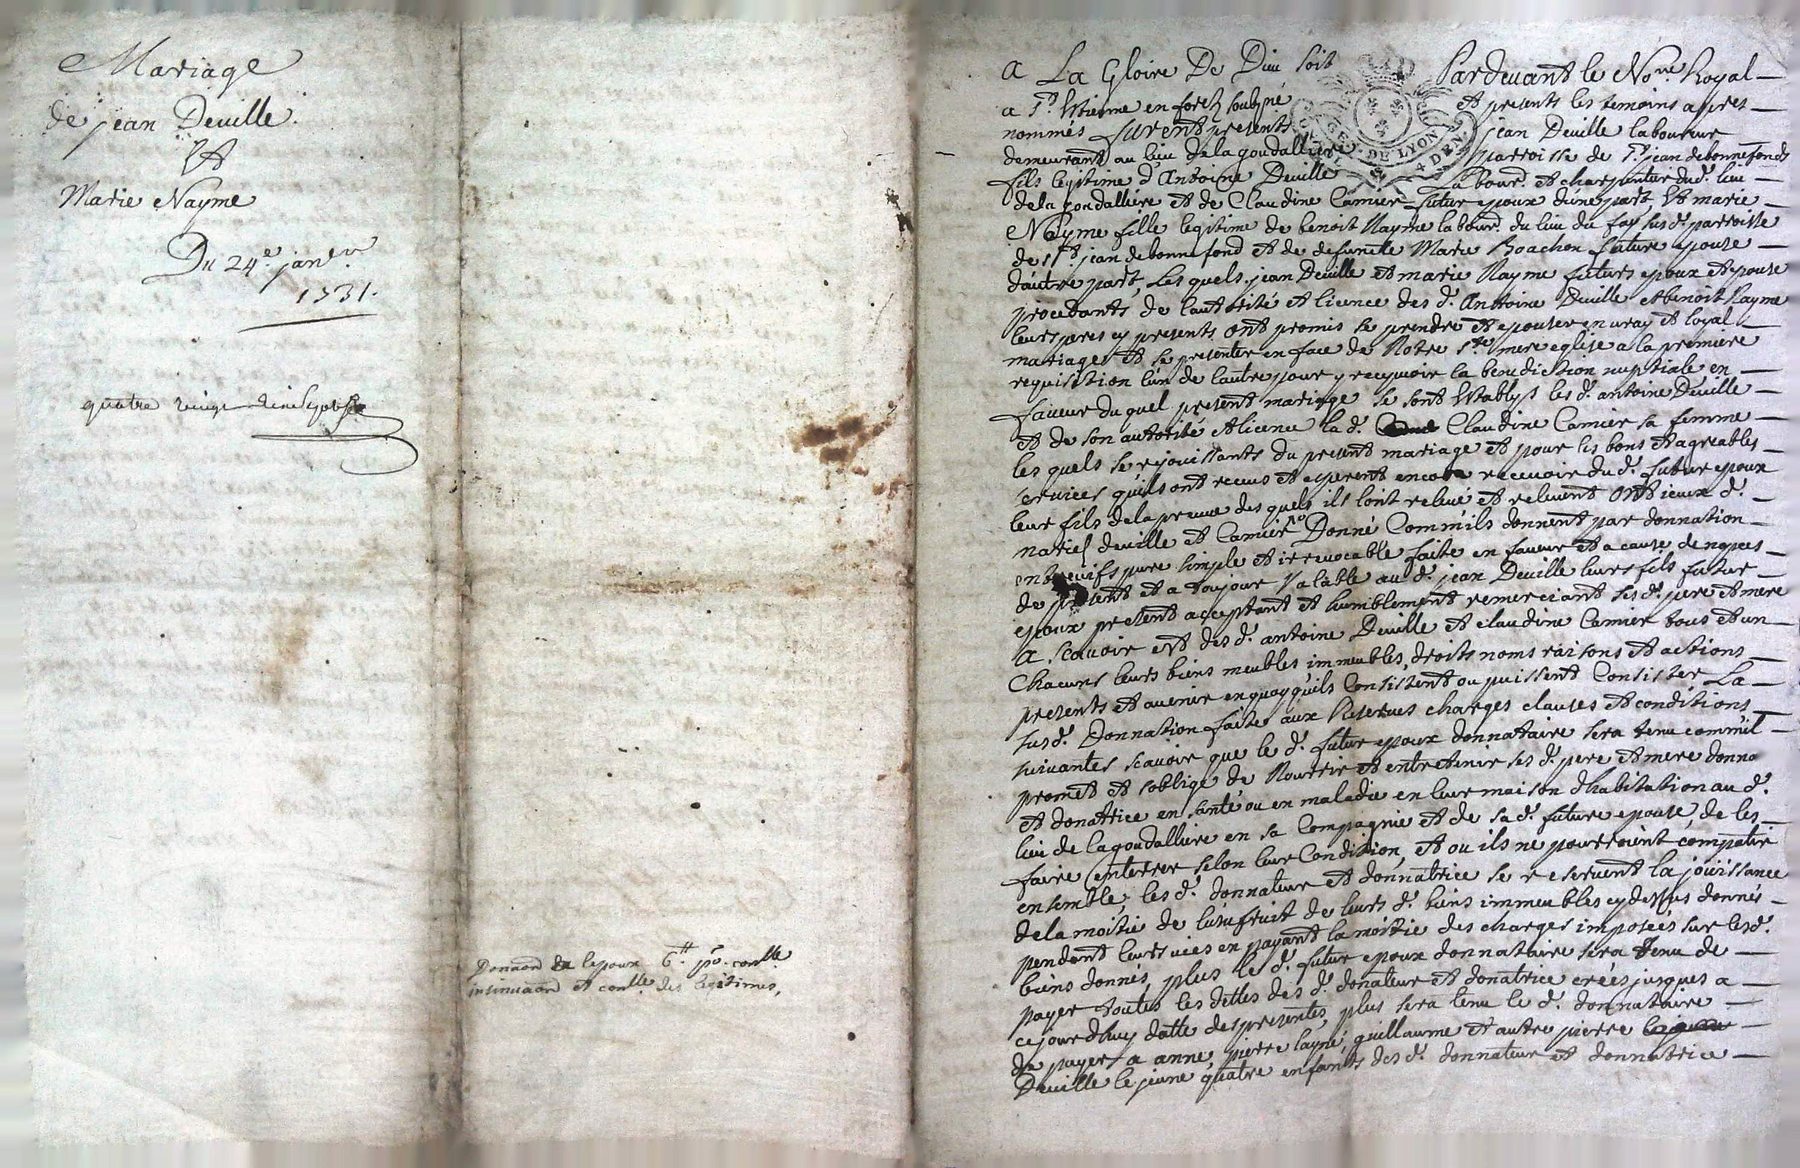 Mariage
de jean Deuille.
Et
Marie Nayme
Du 24e. janer
1731.
quatre vingt
Donaon de lepoux 6tt po. conlle
insinuaon et conlle des legitimes,
A La Gloire De Dieu soit Pardeuant le Nore Royal
a St Etienne en forez soubzné et presents les temoins apres
nommés furent presents jean Deuille laboureur
demeurant au lieu de la goudalliere parroisse de St jean de bonnefonds
fils legitime d'Antoine Deuille Labourd. et charpentier dud. lieu
de la goudalliere et de Claudine Camier futur epoux d'une part, Et marie
Nayme fille legitime de benoit Nayme labour. du lieu du fay susd. parroisse
de St jean de bonnefond et de defuncte Marie Boachon future epouse
d'autre part, Les quels jean Deuille et marie Nayme futurs epoux et epouse
procedants de l'autorité et licence des d. Antoine Deuille et benoit Nayme
leurs peres cy presents ont promis se prendre et epouser en vray et loyal
mariage et se presenter en face de Notre Ste mere eglise a la premiere
requisition l'un de l'autre pour y recepuoir la benediction nuptiale en
faueur du quel present mariage se sont Etablys les d. antoine Deuille
et de son autorité et licence la d. Claudine Camier sa femme
les quels se rejouissants du present mariage et pour les bons et agreables
seruices quils ont receus et esperent encore receuoir du d. futur epoux
leur fils de la preuue des quels ils l'ont releué et releuent ont iceux d.
mariés deuille et Camier Donné Comm'ils donnent par donnation
entre vifs pure simple et irreuocable faite en faueur et a cause de nopces
de present et a toujour valable au d. jean Deuille leurs fils futur
epoux present acceptant et humblement remerciant ses d. pere et mere
A scauoir est des d. antoine Deuille et claudine Camier tous et un
Chacuns leurs biens meubles immeubles, droits noms raisons et actions
presents et auenir en quoy quils Consistent ou puissent Consister La
susd. Donnation faite aux Reserues charges clauses et conditions
suiuantes scauoir que le d. futur epoux donnattaire sera tenu comm'il
promet et s'oblige de Nourrir et entretenir ses d. pere et mere donna
et donatrice en santé ou en maladie en leur maison d'habitation au d.
lieu de la goudalliere en sa Compagnie et de sa d. future epouse, de les
faire enterrer selon leur Condition, et ou ils ne pourroient compatir
ensemble, les d. donnateur et donnatrice se reseruent la jouissance
de la moitié de l'usufruit de leurs d. biens immeubles cy dessus donnés
pendant leurs vies en payant la moitié des charges imposées sur les d.
biens donnés, plus le d. futur epoux donnataire sera tenu de
payer toutes les dettes des d. donateur et donatrice creés jusques a
cejourd'huy datte des presentes, plus sera tenu le d. donnataire
de payer a anne, pierre layné, guillaume et autre pierre
Deuille le jeune quatre enfants des d. donnateur et donnatrice
GEN. DE LYON